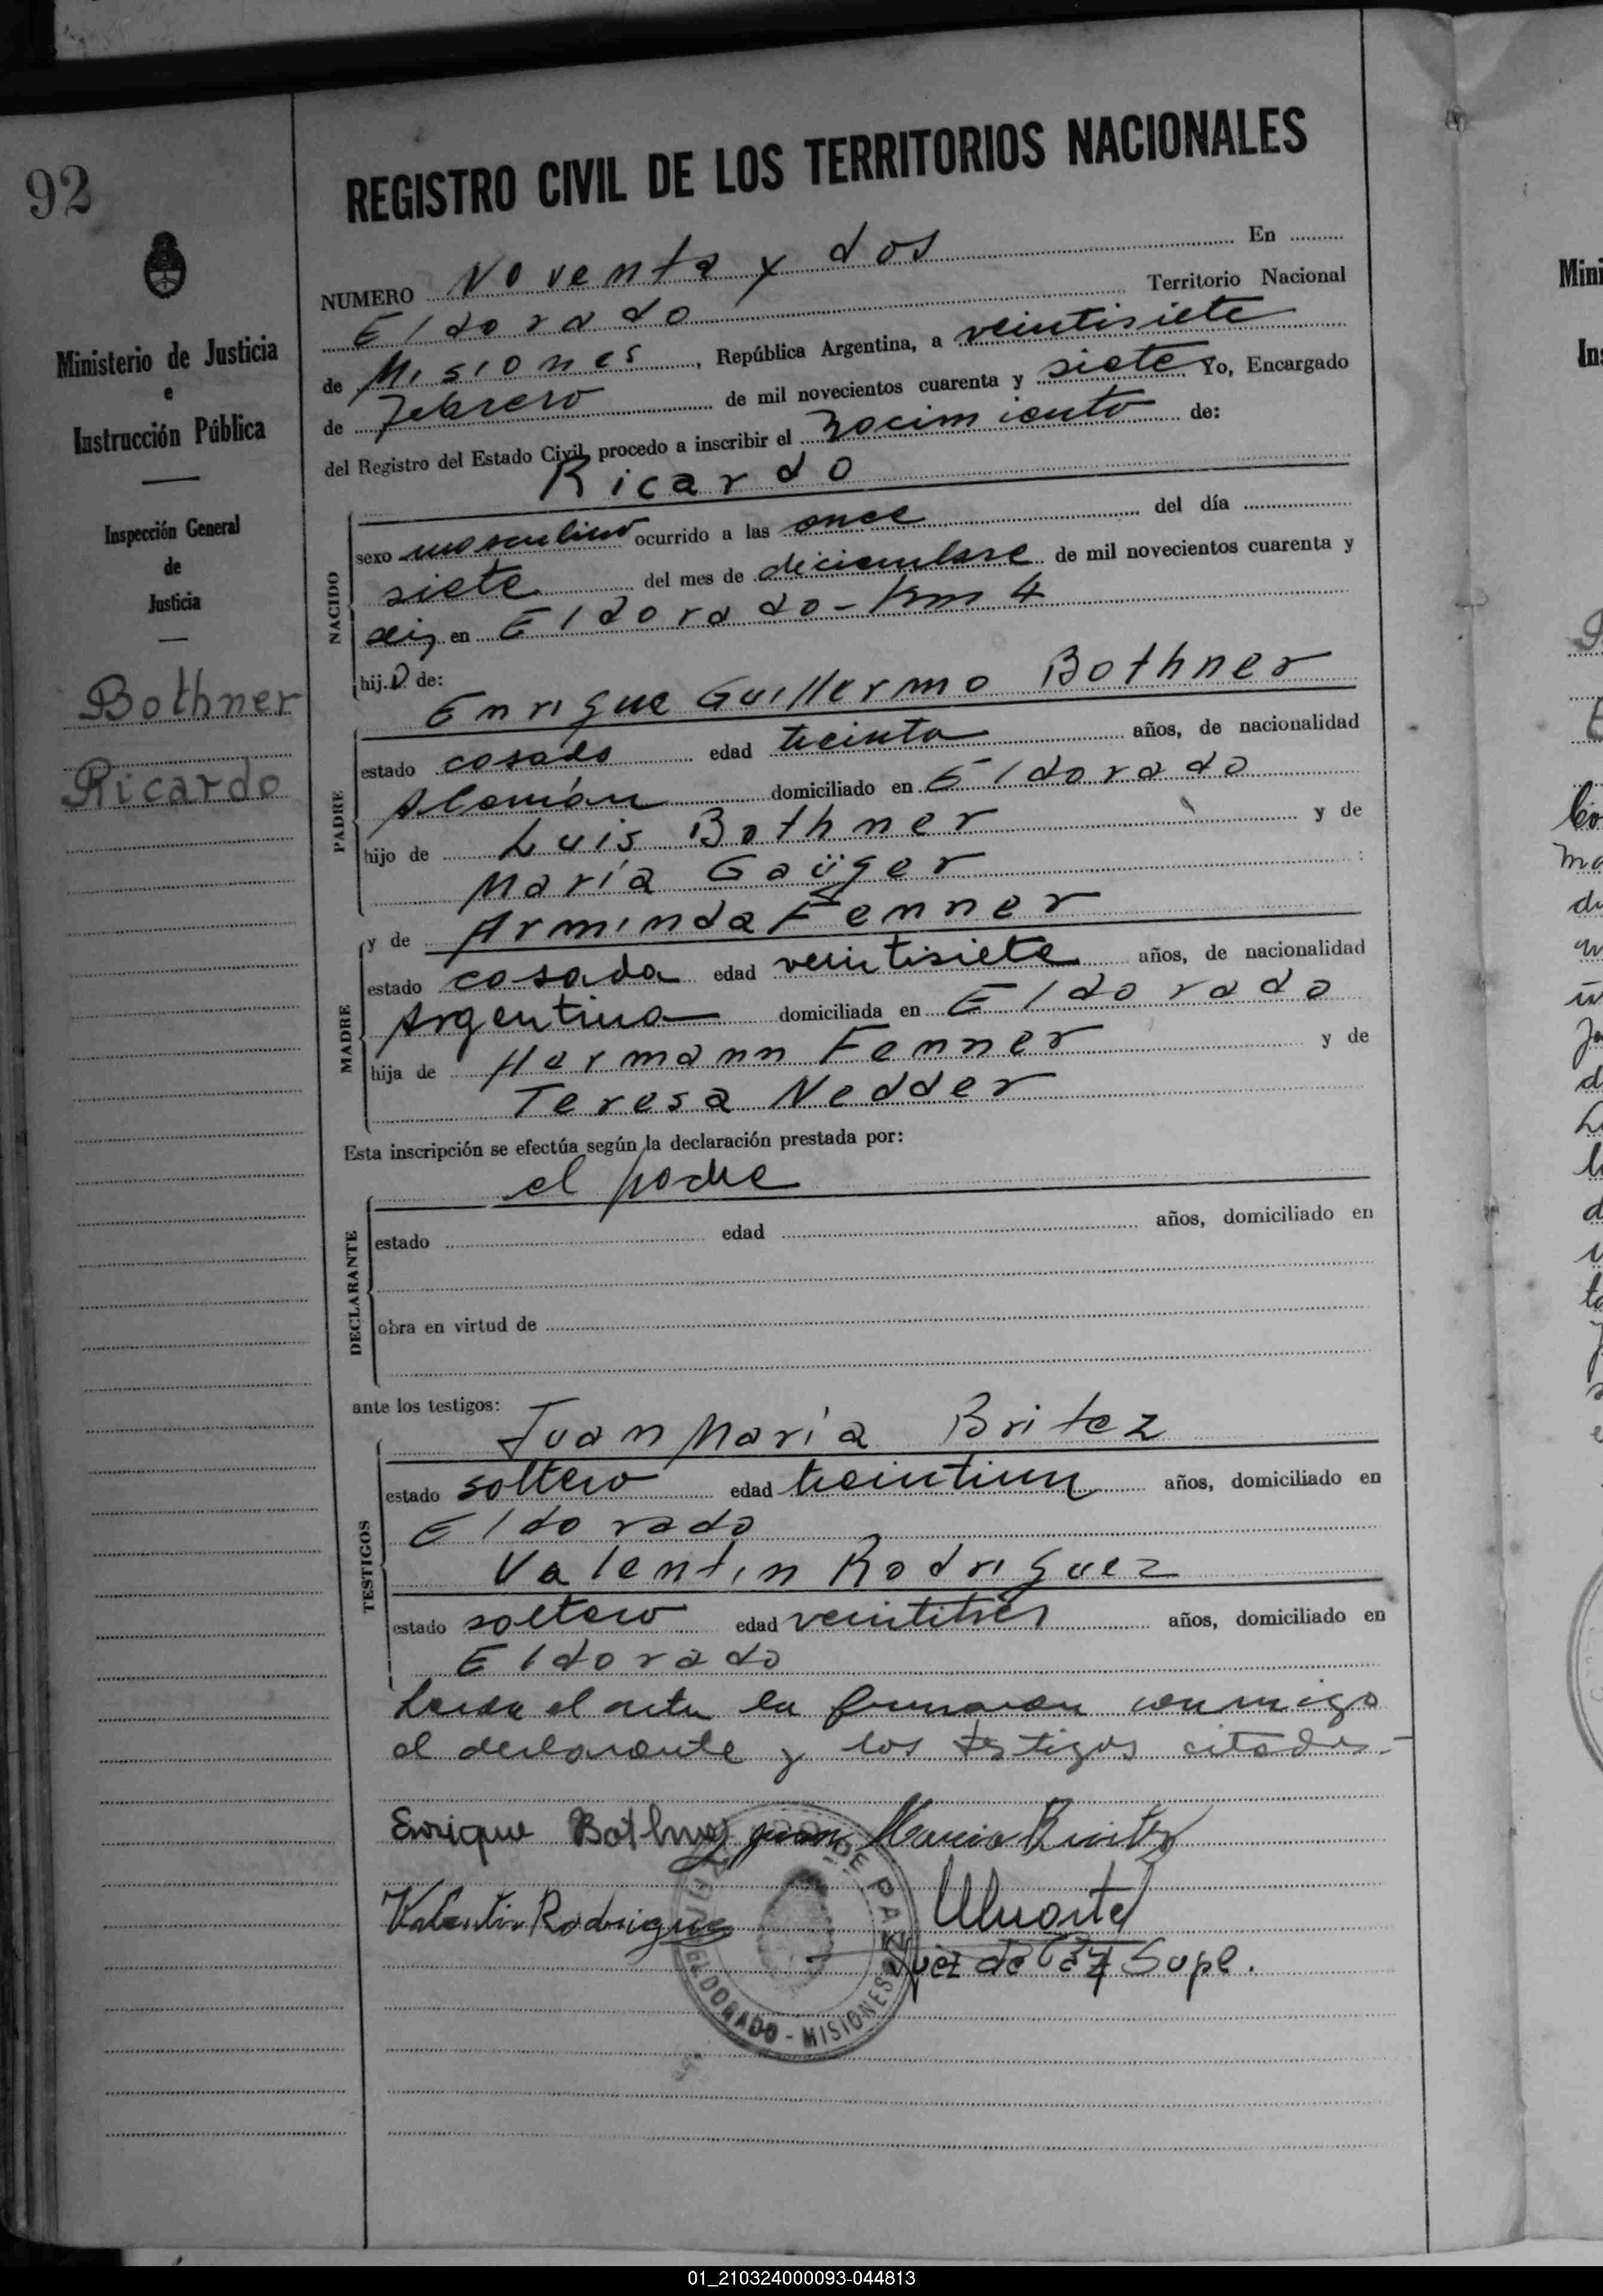 92
Ministerio de Justicia
e
Instrucción Pública
Inspección General
de
Justicia
Bothner
Ricardo
REGISTRO CIVIL DE LOS TERRITORIOS NACIONALES
NUMERO Noventa y dos En
Eldorado Territorio Nacional
de Misiones, República Argentina, a veintisiete
de Febrero de mil novecientos cuarenta y siete Yo, Encargado
del Registro del Estado Civil, procedo a inscribir el nacimiento de:
Ricardo
NACIDO
sexo masculino ocurrido a las once del día
siete del mes de diciembre de mil novecientos cuarenta y
seis en Eldorado - Km 4
hijo de:
Enrique Guillermo Bothner
PADRE
estado casado edad treinta años, de nacionalidad
Alemán domiciliado en Eldorado
hijo de Luis Bothner y de
María Gaüger
y de Arminda Fenner
MADRE
estado casada edad veintisiete años, de nacionalidad
Argentina domiciliada en Eldorado
hija de Hermann Fenner y de
Teresa Nedder
Esta inscripción se efectúa según la declaración prestada por:
el padre
DECLARANTE
estado edad años, domiciliado en
obra en virtud de
ante los testigos:
Juan María Britez
TESTIGOS
estado soltero edad treintiun años, domiciliado en
Eldorado
Valentin Rodriguez
estado soltero edad veintitrés años, domiciliado en
Eldorado
Leida el acta la firmaron conmigo
el declarante y los testigos citados.-
Enrique Bothner Juan Maria Britez
Valentin Rodriguez
Juez de Paz Supl.
DE PAZ
ELDORADO - MISIONES
Mini
Ins
01_210324000093-044813